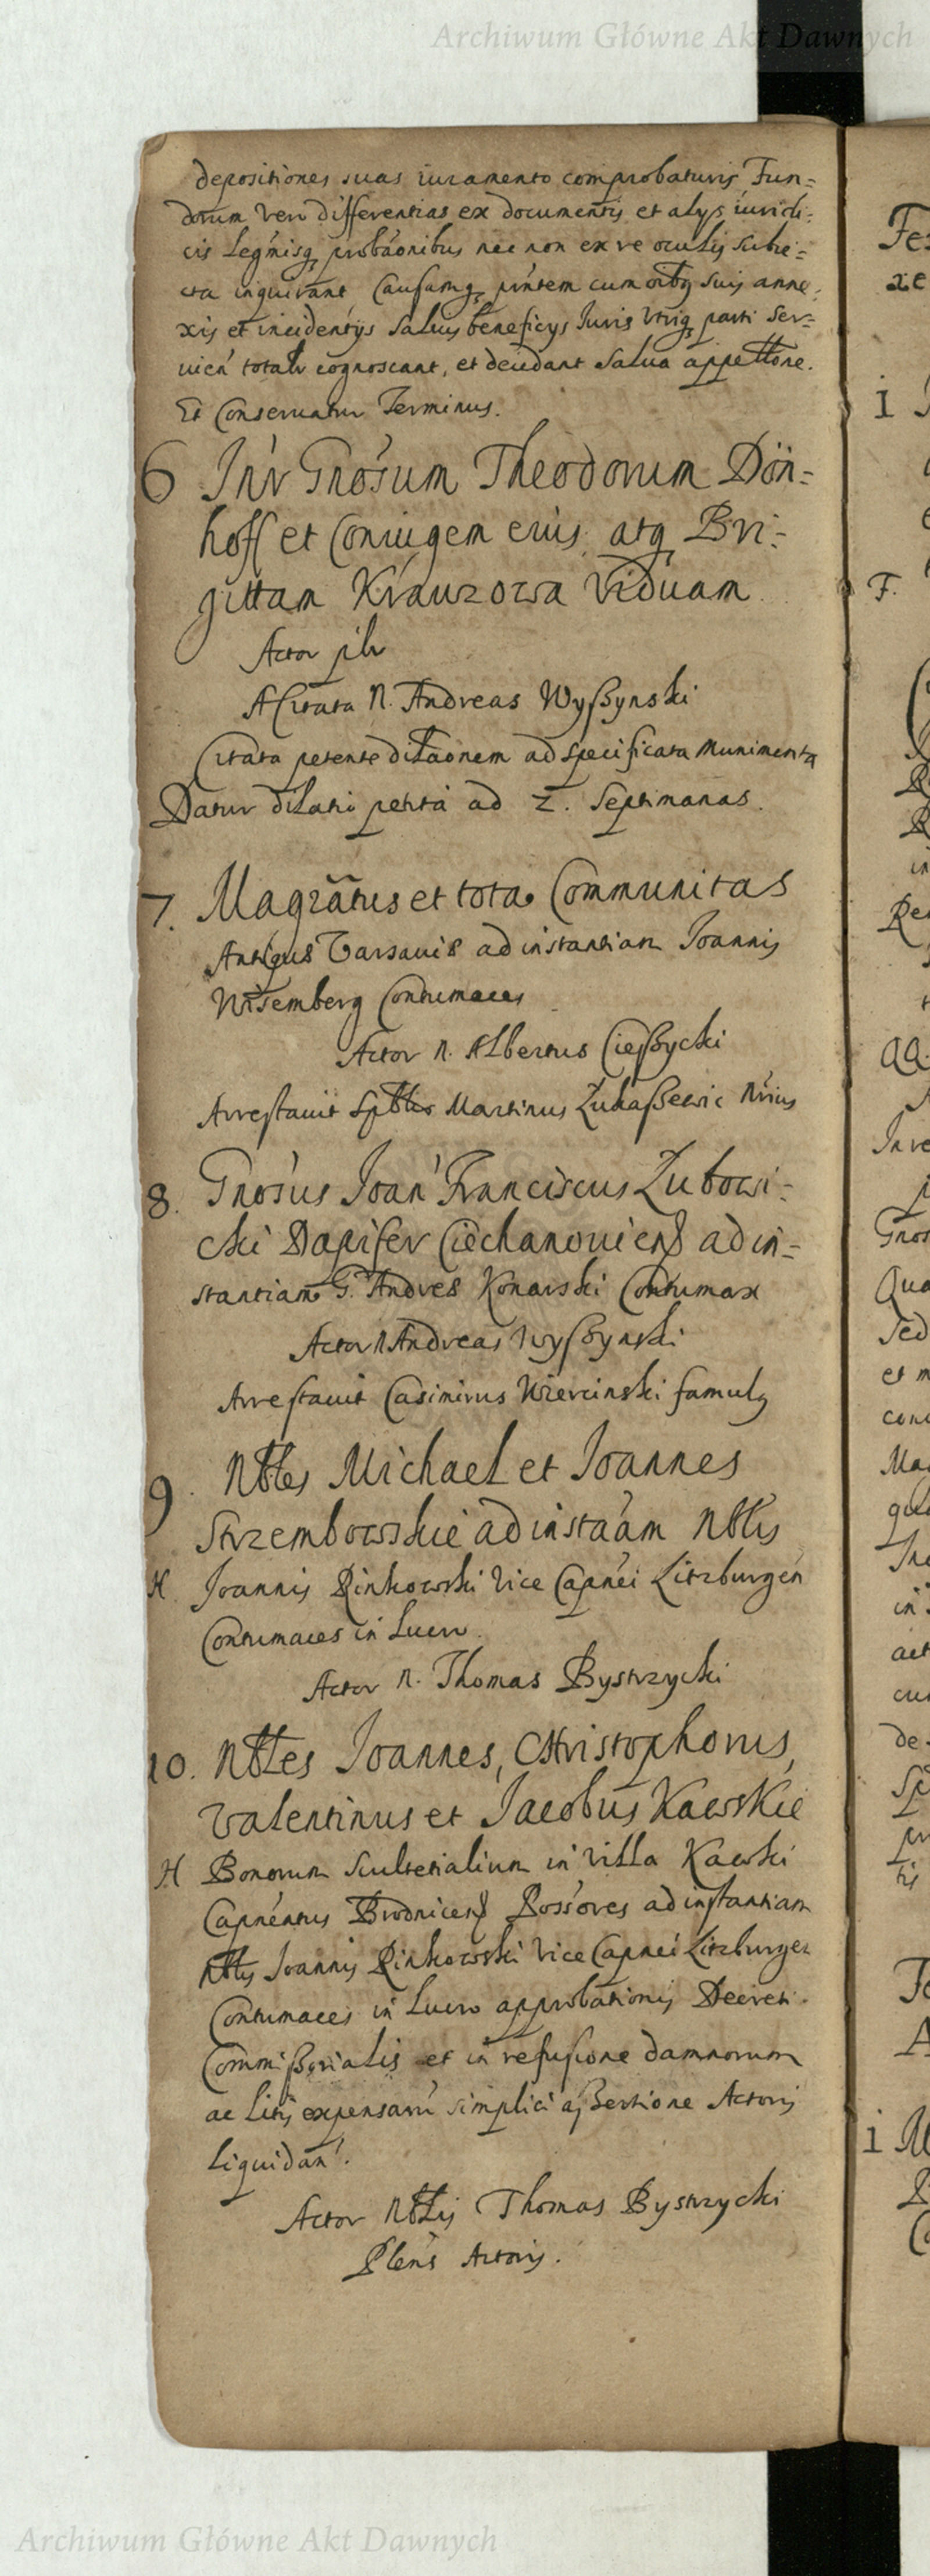 Archiwum Główne Akt Dawnych
depositiones suas iuramento comprobaturis Fun=
dorum vero differentias ex documentis et alys iuridi=
cis legmisq probaonibus nec non ex re oculis subie=
cta inquirant, Causamq pntem cum oibq suis anne=
xis et incidentijs salvis beneficys Iuris vtriq parti ser=
vien totalr cognoscant, et decidant salua appellone.
Et Conseruatur Terminus.
6 Inr Gnosum Theodorum Dön=
hoff et Coniugem eius atq Bri=
gittam Krauzowa Viduam
Actor plr
A Citata N. Andreas Wyszynski
Citata petente dilaonem ad specificata Munimenta
Datur dilatio petita ad 2. Septimanas.
7. Magratus et tota Communitas
Antiquæ Varsaviæ ad instantiam Joannis
Wisemberg Contumaces
Actor N. Albertus Cieszycki
Arrestauit Spblis Martinus Lukaszewic Nrius
8. Gnosus Joan Franciscus Lubowi=
cki Dapifer Ciechanouiens ad in=
stantiam G. Andreæ Konarski Contumax
Actor N Andreas Wyszynski
Arrestauit Casimirus Wiercinski famulq
9. Nbles Michael et Joannes
Strzembowskie ad instaam Nblis
H Joannis Pinkowski Vice Capnei Litzburgen
Contumaces in Lucro.
Actor N. Thomas Bystrzycki
10. Nbles Joannes, Christophorus,
Valentinus et Jacobus Kawskie
H Bonorum scultetialium in Villa Kawski
Capneatus Brodnicens Possores ad instantiam
Nblis Joannis Pinkowski Vice Capnei Litzburgen
Contumaces in Lucro approbationis Decreti
Commissorialis et in refusione damnorum
ac Litis expensaru simplici assertione Actoris
liquidan.
Actor Nblis Thomas Bystrzycki
Plens Actoris.
Archiwum Główne Akt Dawnych